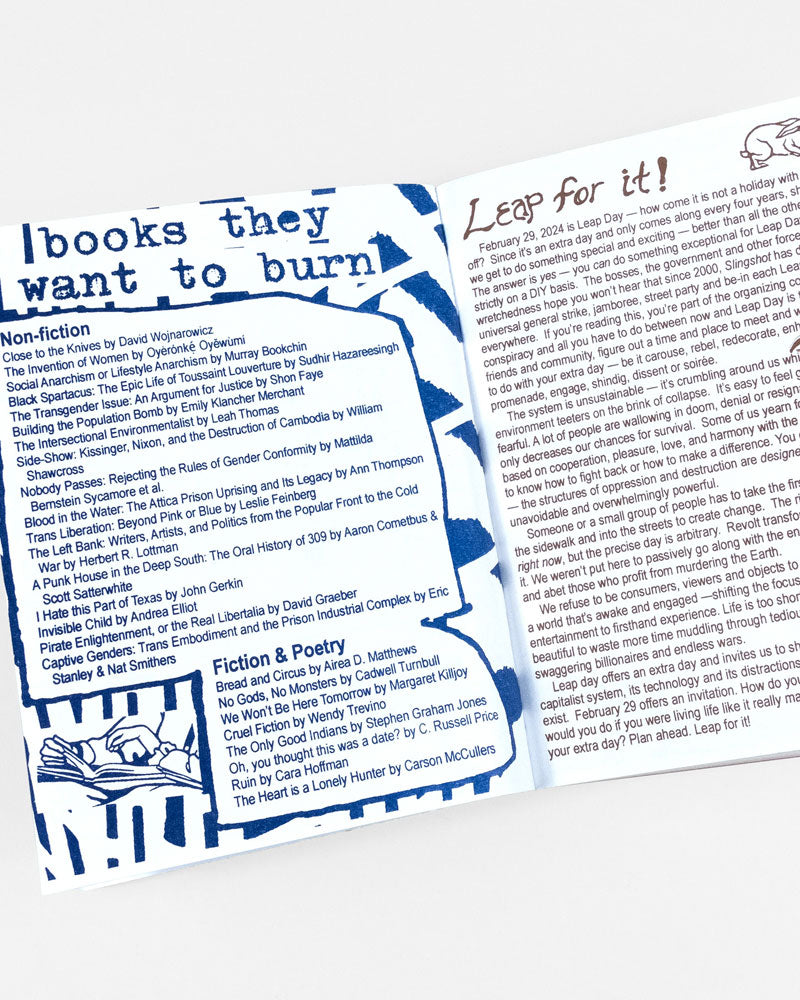 books they
want to burn
Non-fiction
Close to the Knives by David Wojnarowicz
The Invention of Women by Oyèrónkẹ́ Oyěwùmí
Social Anarchism or Lifestyle Anarchism by Murray Bookchin
Black Spartacus: The Epic Life of Toussaint Louverture by Sudhir Hazareesingh
The Transgender Issue: An Argument for Justice by Shon Faye
Building the Population Bomb by Emily Klancher Merchant
The Intersectional Environmentalist by Leah Thomas
Side-Show: Kissinger, Nixon, and the Destruction of Cambodia by William
Shawcross
Nobody Passes: Rejecting the Rules of Gender Conformity by Mattilda
Bernstein Sycamore et al.
Blood in the Water: The Attica Prison Uprising and Its Legacy by Ann Thompson
Trans Liberation: Beyond Pink or Blue by Leslie Feinberg
The Left Bank: Writers, Artists, and Politics from the Popular Front to the Cold
War by Herbert R. Lottman
A Punk House in the Deep South: The Oral History of 309 by Aaron Cometbus &
Scott Satterwhite
I Hate this Part of Texas by John Gerkin
Invisible Child by Andrea Elliot
Pirate Enlightenment, or the Real Libertalia by David Graeber
Captive Genders: Trans Embodiment and the Prison Industrial Complex by Eric
Stanley & Nat Smithers
Fiction & Poetry
Bread and Circus by Airea D. Matthews
No Gods, No Monsters by Cadwell Turnbull
We Won't Be Here Tomorrow by Margaret Killjoy
Cruel Fiction by Wendy Trevino
The Only Good Indians by Stephen Graham Jones
Oh, you thought this was a date? by C. Russell Price
Ruin by Cara Hoffman
The Heart is a Lonely Hunter by Carson McCullers
Leap for it!
February 29, 2024 is Leap Day — how come it is not a holiday with
off? Since it's an extra day and only comes along every four years, sh
we get to do something special and exciting — better than all the othe
The answer is yes — you can do something exceptional for Leap Da
strictly on a DIY basis. The bosses, the government and other force
wretchedness hope you won't hear that since 2000, Slingshot has d
universal general strike, jamboree, street party and be-in each Leap
everywhere. If you're reading this, you're part of the organizing co
conspiracy and all you have to do between now and Leap Day is
friends and community, figure out a time and place to meet and w
to do with your extra day — be it carouse, rebel, redecorate, enh
promenade, engage, shindig, dissent or soirée.
The system is unsustainable — it's crumbling around us wh
environment teeters on the brink of collapse. It's easy to feel
fearful. A lot of people are wallowing in doom, denial or resign
only decreases our chances for survival. Some of us yearn f
based on cooperation, pleasure, love, and harmony with the
to know how to fight back or how to make a difference. You
— the structures of oppression and destruction are designe
unavoidable and overwhelmingly powerful.
Someone or a small group of people has to take the firs
the sidewalk and into the streets to create change. The ri
right now, but the precise day is arbitrary. Revolt transfor
it. We weren't put here to passively go along with the en
and abet those who profit from murdering the Earth.
We refuse to be consumers, viewers and objects to
a world that's awake and engaged —shifting the focus
entertainment to firsthand experience. Life is too shor
beautiful to waste more time muddling through tediou
swaggering billionaires and endless wars.
Leap day offers an extra day and invites us to sh
capitalist system, its technology and its distractions
exist. February 29 offers an invitation. How do you
would you do if you were living life like it really ma
your extra day? Plan ahead. Leap for it!